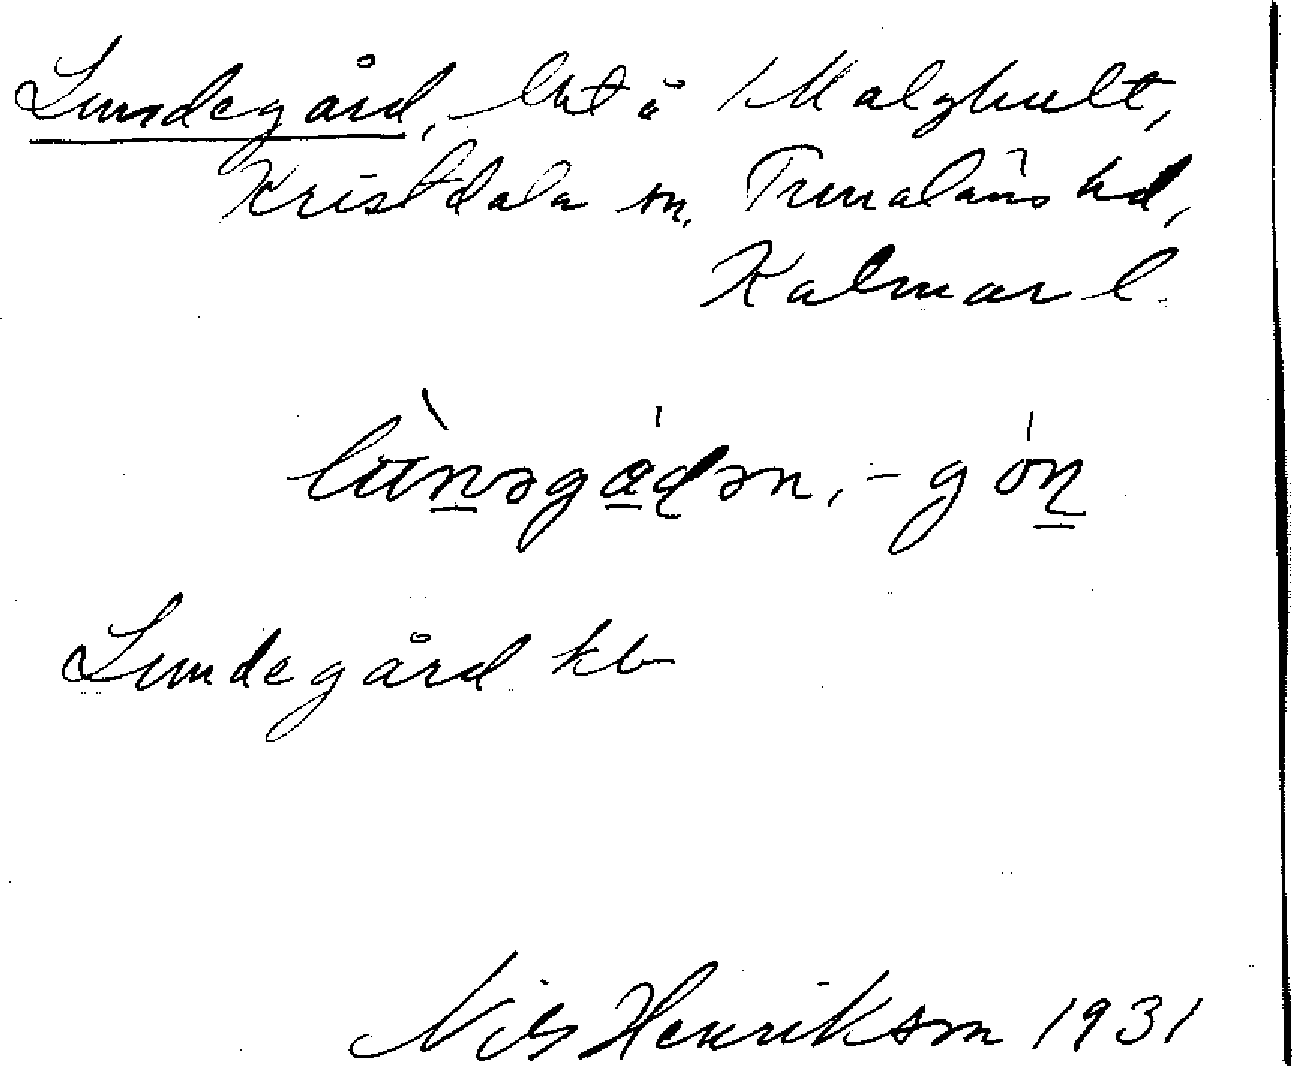 Lundegård, lht å Malghult,
Kristdala sn, Tunaläns hd,
Kalmar l.
lùnəgád̥ən, -gón̥
Lundegård kb
Nils Henrikson 1931